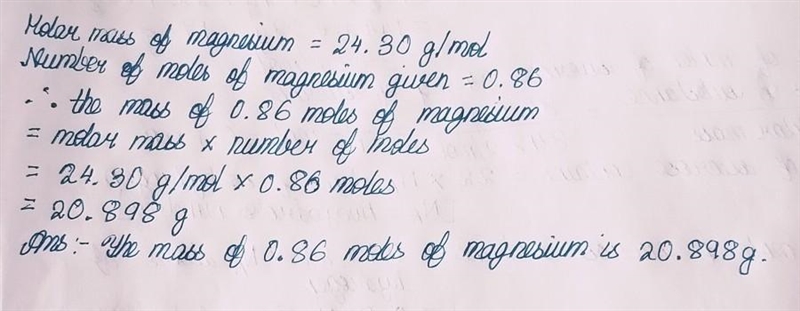 Molar mass of magnesium = 24.30 g/mol
Number of moles of magnesium given = 0.86
∴ the mass of 0.86 moles of magnesium
= molar mass x number of moles
= 24.30 g/mol x 0.86 moles
= 20.898 g
Ans:- The mass of 0.86 moles of magnesium is 20.898g.